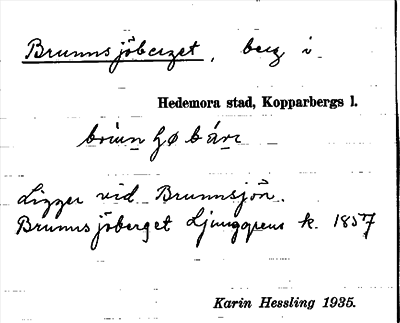 Brunnsjöberget, berg i
Hedemora stad, Kopparbergs l.
Ligger vid Brunnsjön.
Brunnsjöberget Ljunggrens k. 1857
Karin Hessling 1935.